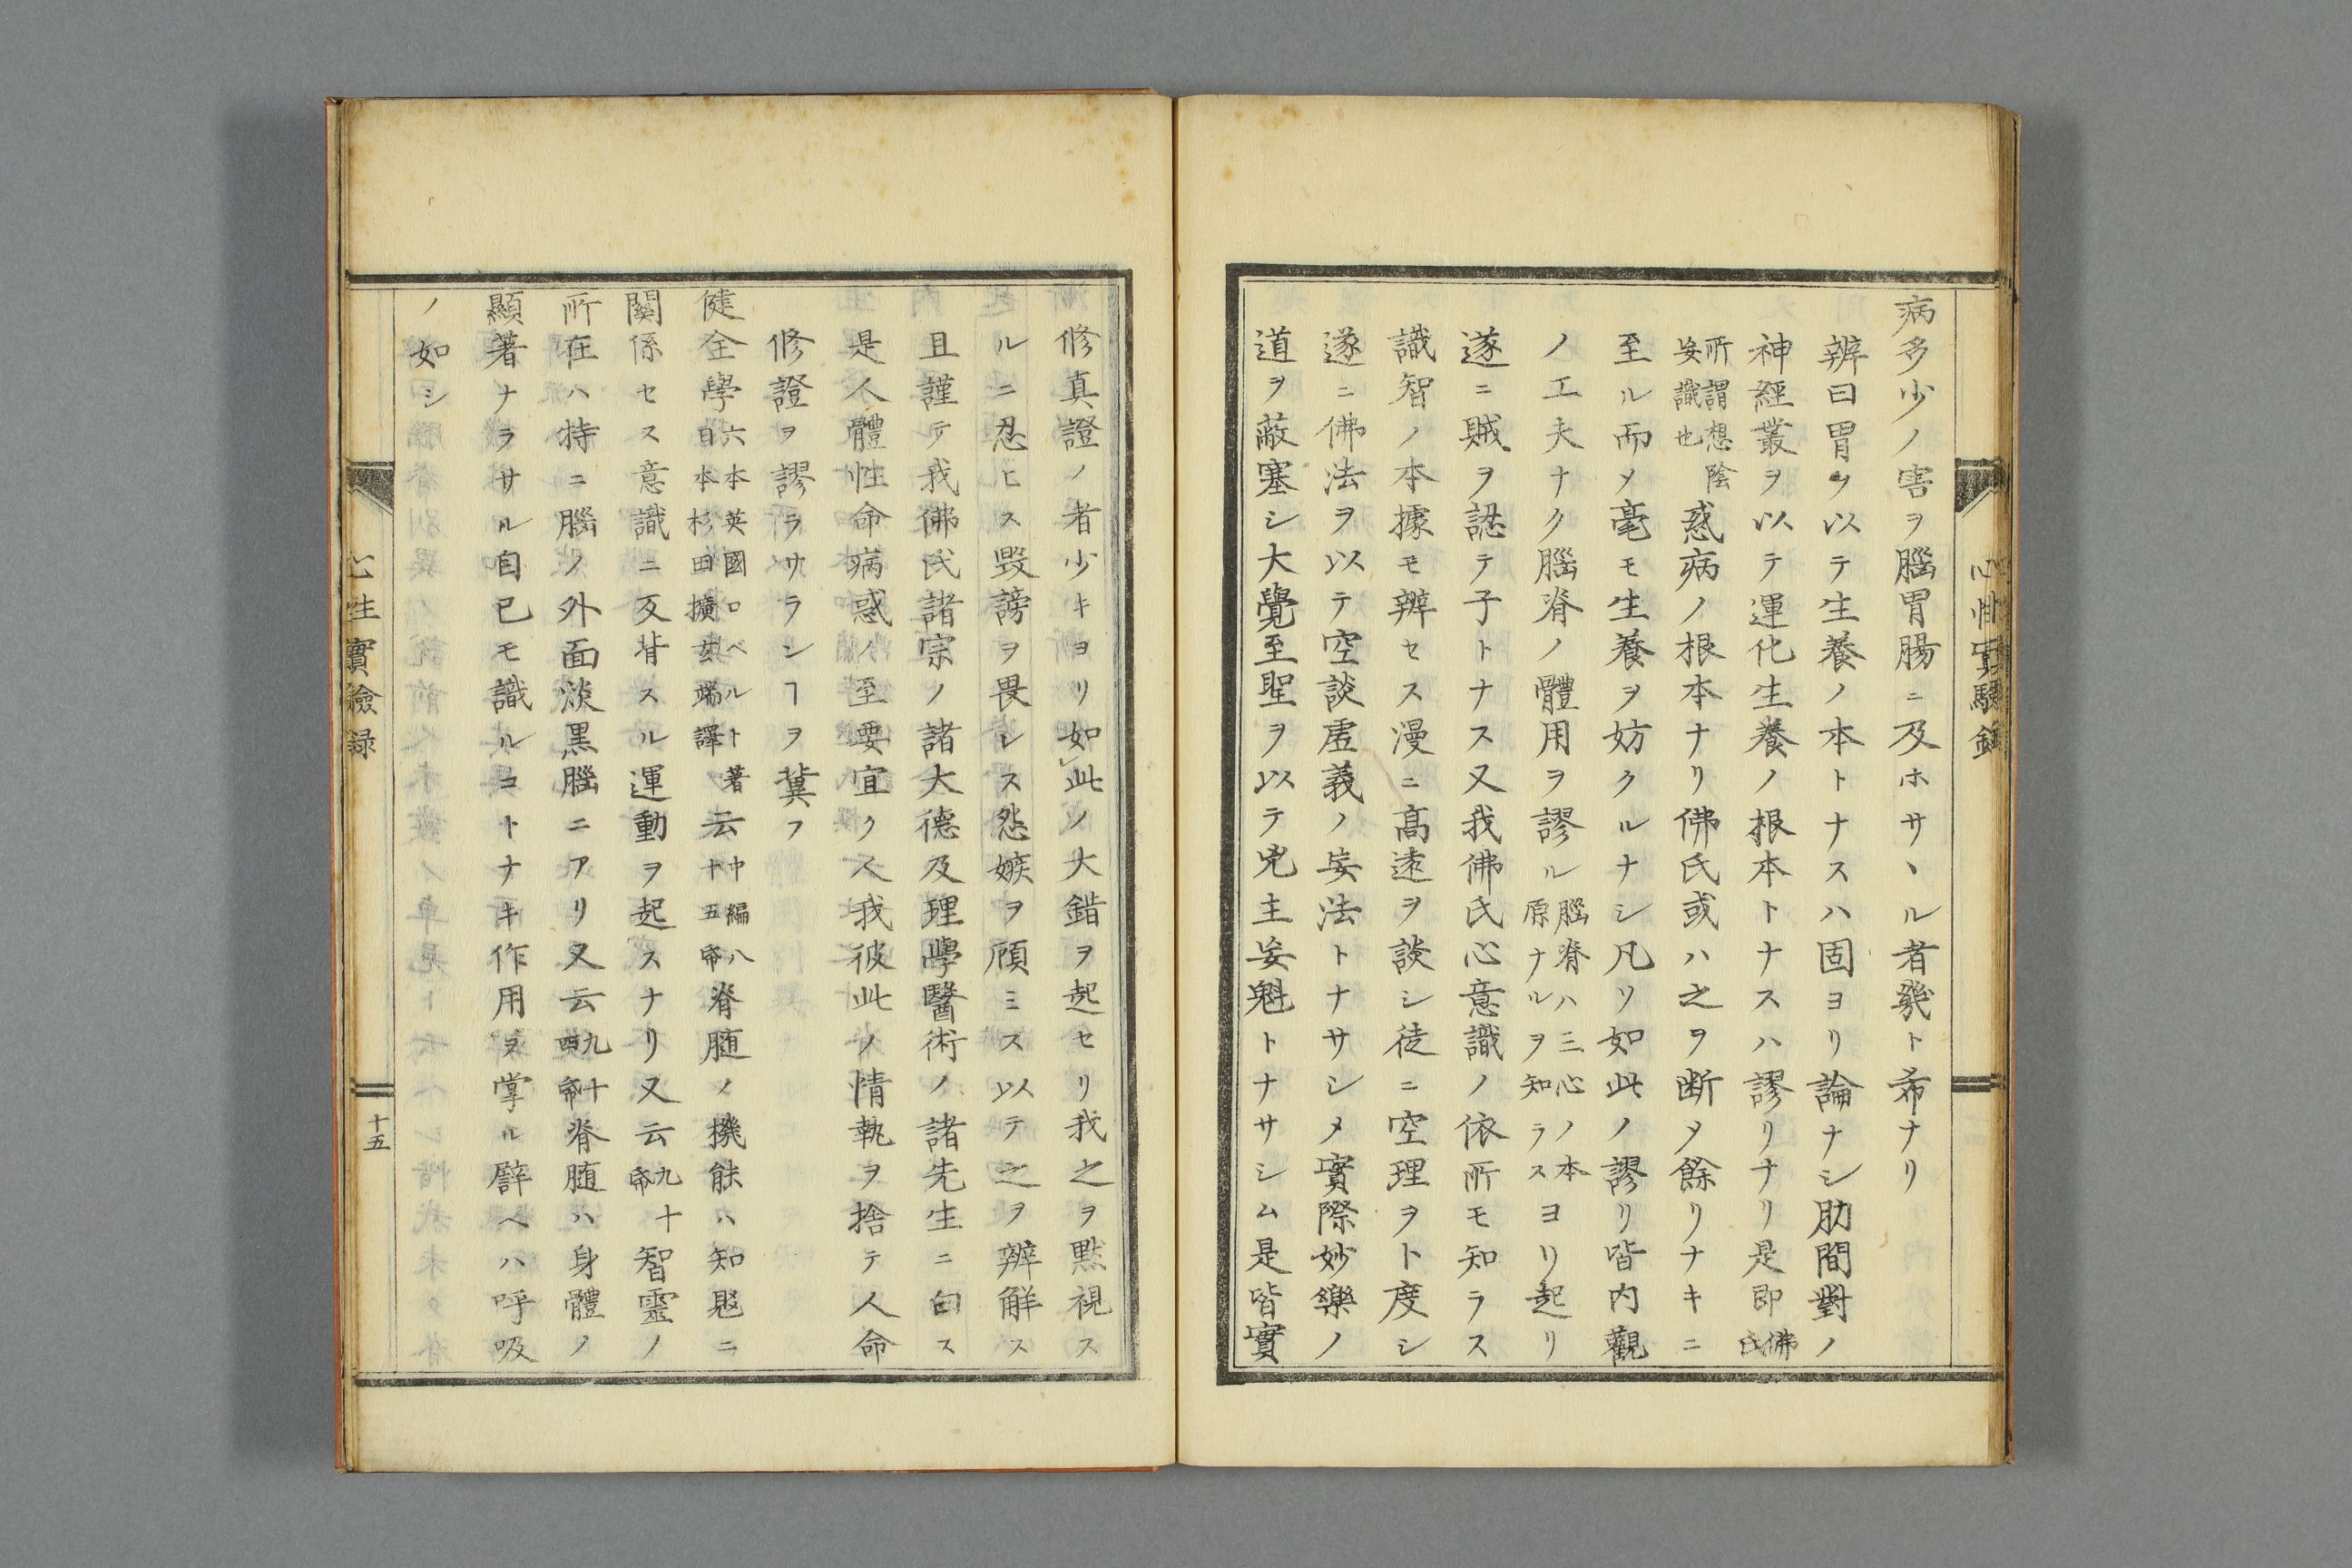 心性實驗録
病多少ノ害ヲ腦胃腸ニ及ホサヽル者幾ト希ナリ
辨曰胃ヲ以テ生養ノ本トナスハ固ヨリ論ナシ肋間對ノ
神經叢ヲ以テ運化生養ノ根本トナスハ謬リナリ是即佛氏
所謂想陰妄識也惑病ノ根本ナリ佛氏或ハ之ヲ断メ餘リナキニ
至ル而メ毫モ生養ヲ妨クルナシ凡ソ如此ノ謬リ皆内觀
ノ工夫ナク腦脊ノ體用ヲ謬ル腦脊ハ三心ノ本原ナルヲ知ラスヨリ起リ
遂ニ賊ヲ認テ子トナス又我佛氏心意識ノ依所モ知ラス
識智ノ本據モ辨セス漫ニ高遠ヲ談シ徒ニ空理ヲト度シ
遂ニ佛法ヲ以テ空談虚義ノ妄法トナサシメ實際妙樂ノ
道ヲ蔽塞シ大覺至聖ヲ以テ兇主妄魁トナサシム是皆實
修真證ノ者少キヨリ如此ノ大錯ヲ起セリ我之ヲ黙視ス
ルニ忍ヒス毀謗ヲ畏レス怨嫉ヲ顧ミス以テ之ヲ辨解ス
且謹テ我佛氏諸宗ノ諸大德及理學醫術ノ諸先生ニ白ス
是人體性命病惑ノ至要宜ク人我彼此ノ情執ヲ捨テ人命
修證ヲ謬ラサラシヿヲ冀フ
健全學六本英國ロベルト著日本杉田擴玄端譯云中編八十五帋脊髄ノ機能ハ知覺ニ
關係セス意識ニ反背スル運動ヲ起スナリ又云九十帋智靈ノ
所在ハ特ニ腦ノ外面淡黒腦ニアリ又云九十四帋脊髄ハ身體ノ
顯著ナラサル自己モ識ルコトナキ作用ヲ掌ル譬ヘハ呼吸
ノ如シ
心性實驗録
十五